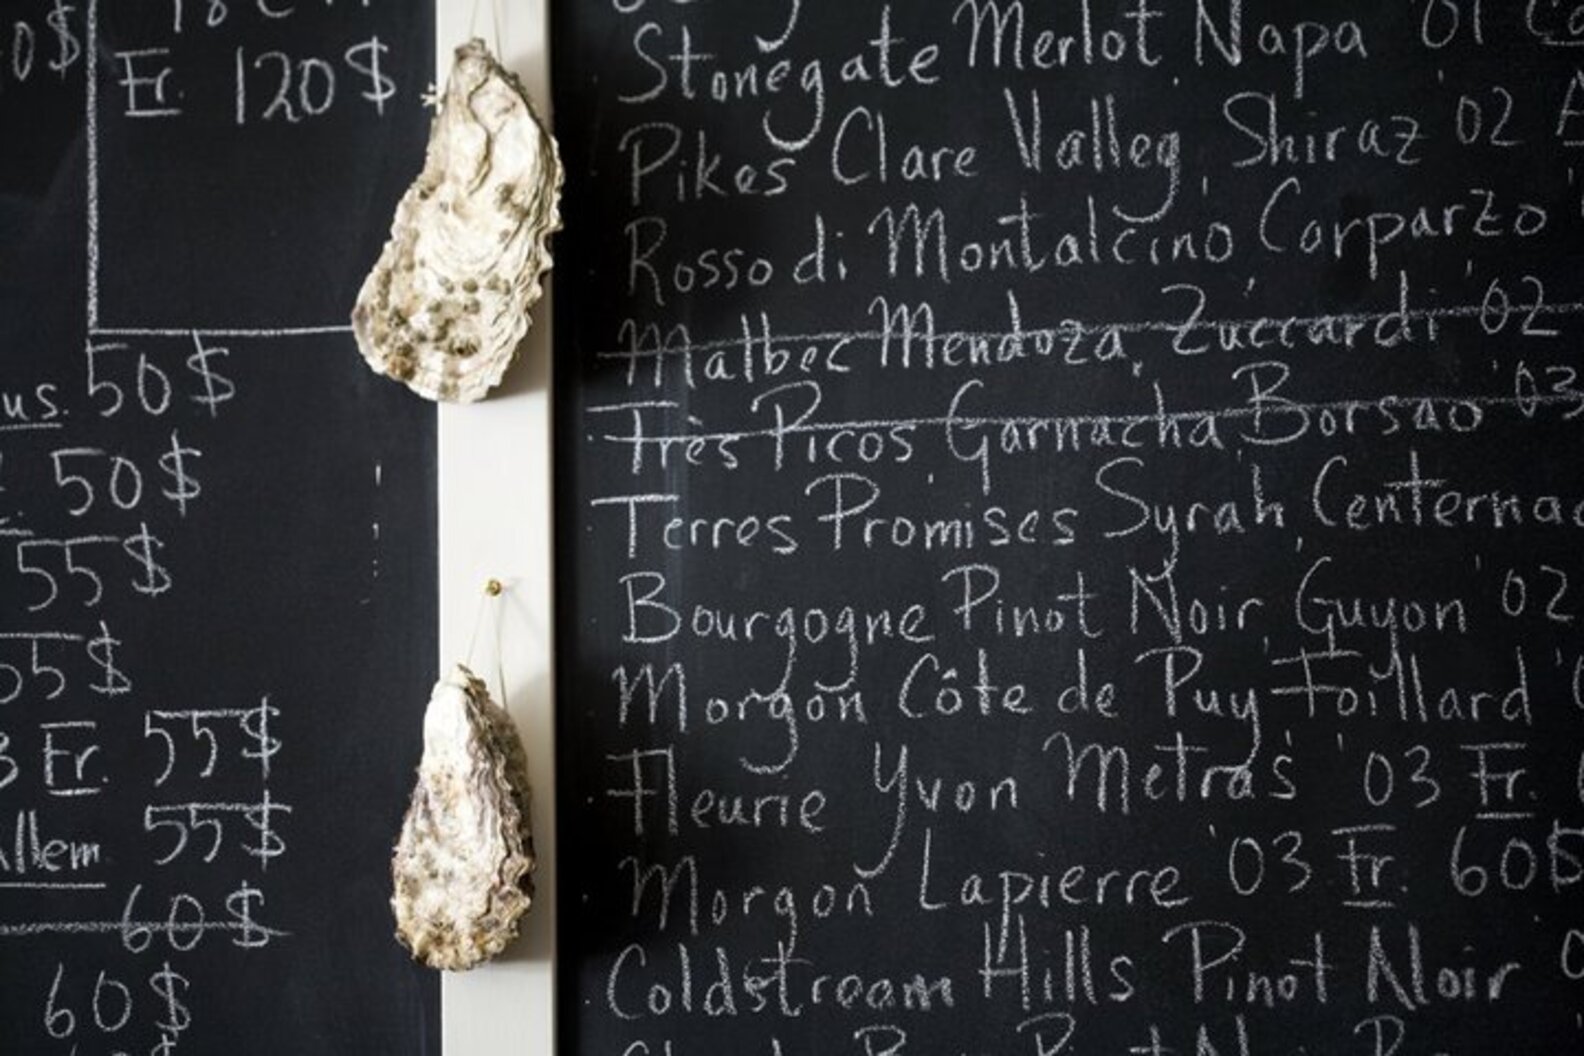 0$
Er. 120$
us. 50$
50$
55$
55$
3 Fr. 55$
Allem 55$
60$
60$
Stonegate Merlot Napa '01
Pikes Clare Valley Shiraz '02
Rosso di Montalcino Carparzo
Malbec Mendoza Zuccardi '02
Très Picos Garnacha Borsao '03
Terres Promises Syrah Centernac
Bourgogne Pinot Noir Guyon '02
Morgon Côte de Puy Foillard
Fleurie Yvon Metras '03 Fr.
Morgon Lapierre '03 Fr. 60$
Coldstream Hills Pinot Noir